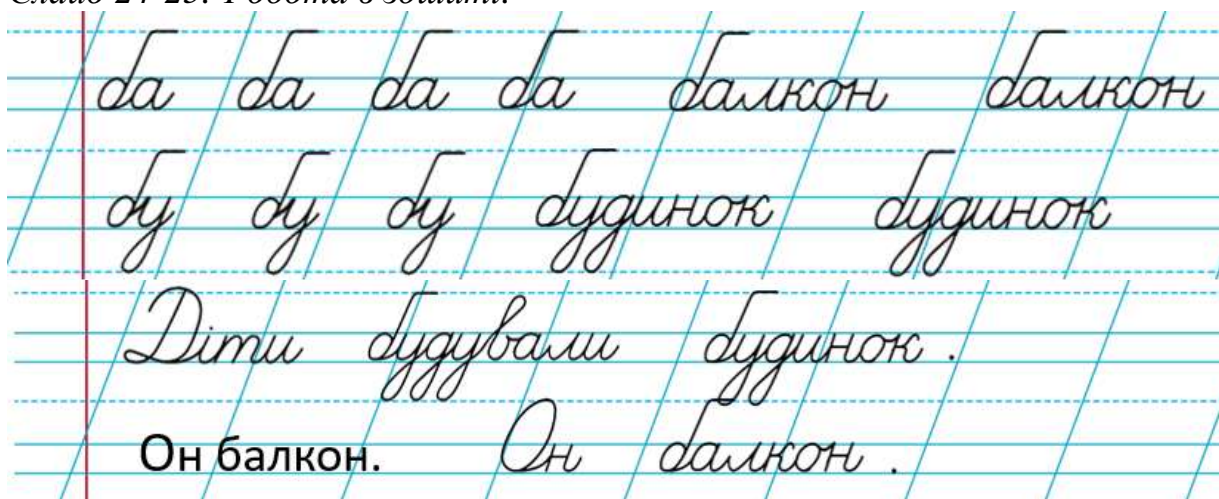 Слайд 24-25. Робота в зошиті.
ба ба ба ба балкон балкон
бу бу бу будинок будинок
Діти будували будинок .
Он балкон. Он балкон .